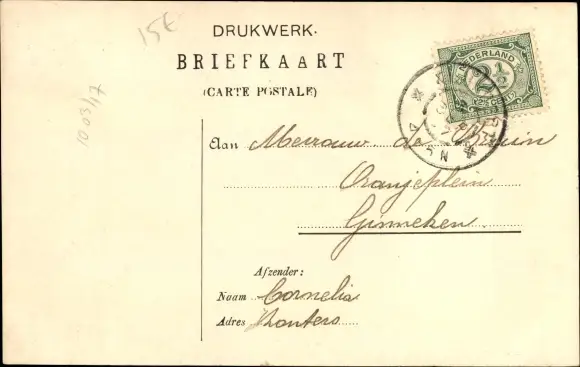 15€
DRUKWERK.
BRIEFKAART
(CARTE POSTALE)
NEDERLAND
2½
Aan Mevrouw de Bruin
Oranjeplein
Ginneken.
Afzender:
Naam Cornelia
Adres Wouters